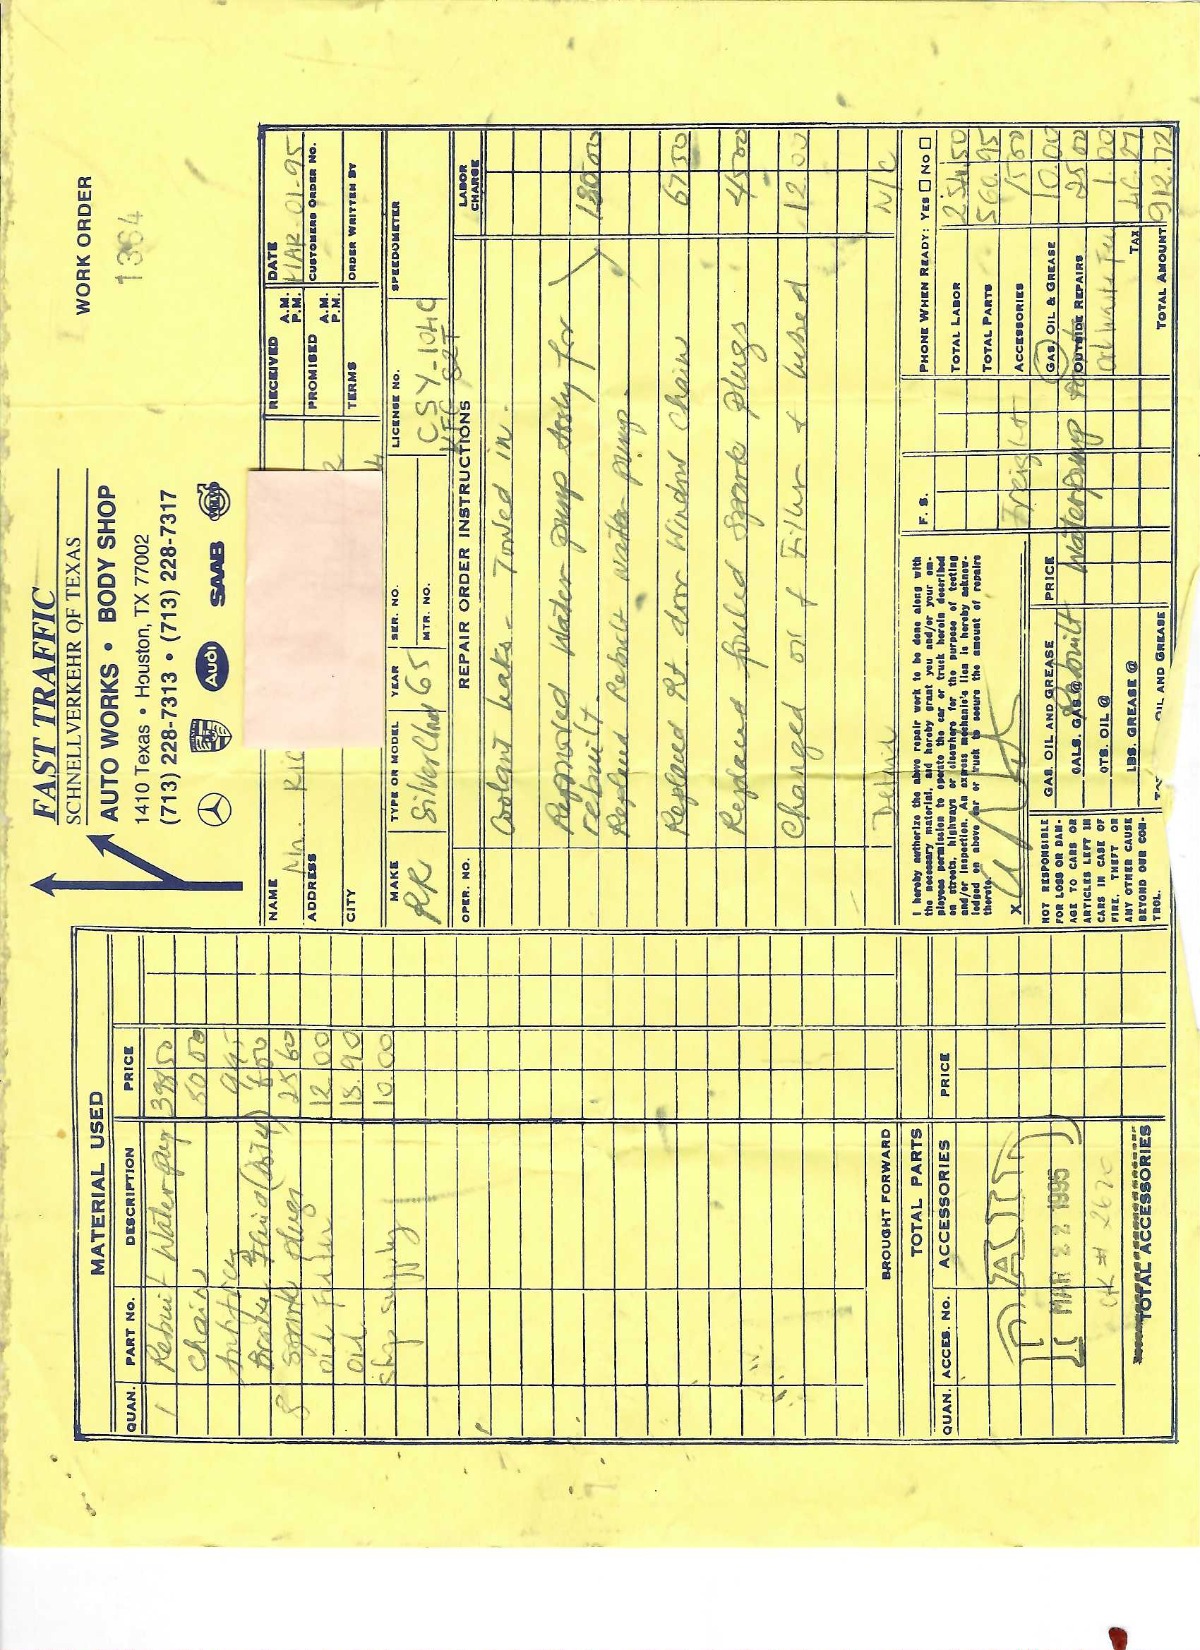 FAST TRAFFIC
SCHNELLVERKEHR OF TEXAS
AUTO WORKS • BODY SHOP
1410 Texas • Houston, TX 77002
(713) 228-7313 • (713) 228-7317
Audi SAAB VOLVO
WORK ORDER
1364
MATERIAL USED
QUAN. PART No. DESCRIPTION PRICE
1 Rebuilt Water pump 50
Chain 50 00
Antifreeze 9.95
Brake Fluid 6.00
8 Spark plugs 25 60
Oil Filter 12.00
Oil 18.90
Shop supply 10.00
BROUGHT FORWARD
TOTAL PARTS
QUAN. ACCES. No. ACCESSORIES PRICE
PAID
MAR 22 1995
CK # 2670
TOTAL ACCESSORIES
NAME Mr. Ric
ADDRESS
CITY
RECEIVED A.M. P.M.
DATE MAR-01-95
PROMISED A.M. P.M.
CUSTOMERS ORDER No.
TERMS
ORDER WRITTEN BY
MAKE RR
TYPE OR MODEL Silver Cloud
YEAR 65
SER. NO.
MTR. NO.
LICENSE NO. CSY-104C
SPEEDOMETER
OPER. NO. REPAIR ORDER INSTRUCTIONS LABOR CHARGE
Coolant leaks - Towed in.
Removed Water pump assly for
rebuilt. 130 00
Replaced Rebuilt water pump.
Replaced Rt door Window Chain 67 50
Replaced fouled Spark plugs 45 00
Changed oil & Filter & lubed 12.00
N/C
I hereby authorize the above repair work to be done along with
the necessary material, and hereby grant you and/or your em-
ployees permission to operate the car or truck herein described
on streets, highways or elsewhere for the purpose of testing
and/or inspection. An express mechanic's lien is hereby acknow-
ledged on above car or truck to secure the amount of repairs
thereto.
X
NOT RESPONSIBLE
FOR LOSS OR DAM-
AGE TO CARS OR
ARTICLES LEFT IN
CARS IN CASE OF
FIRE, THEFT OR
ANY OTHER CAUSE
BEYOND OUR CON-
TROL.
GAS, OIL AND GREASE PRICE
GALS. GAS @
QTS. OIL @
LBS. GREASE @
OIL AND GREASE
Rebuilt Water pump
F. S.
PHONE WHEN READY: YES □ NO □
TOTAL LABOR 254.50
TOTAL PARTS 560.95
Freight
ACCESSORIES 15.00
GAS, OIL & GREASE 10.00
OUTSIDE REPAIRS 25 00
Oil Waste Fee 1.00
TAX 46.27
TOTAL AMOUNT 912.72